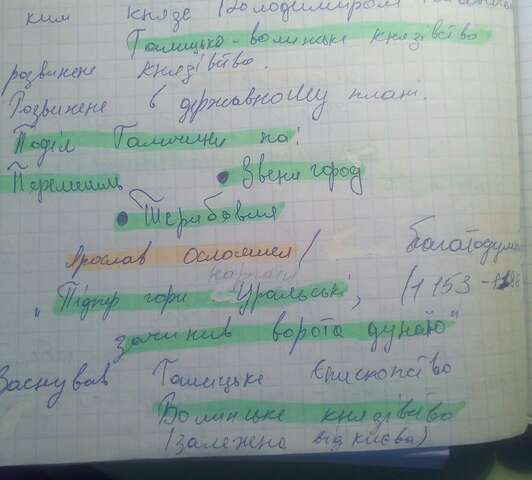 ким князе Володимиром
Галицько-волинське князівство
розвинене князівство.
Розвинене в державному плані.
Поділ Галичини на:
Перемишль • Звенигород
• Теребовля
Ярослав Осломисл / багатодум
карпати
"Підпер гори Уральські, (1153-
зачинив ворота дунаю"
Заснував Галицьке Єпископство
Волинське князівство
(залежне від києва)